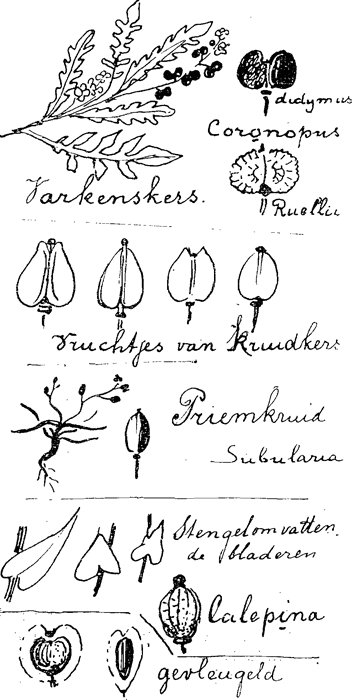 didymus
Coronopus
Varkenskers.
Ruellii
Vruchtjes van Kruidkers
Priemkruid
Subularia
Stengelomvatten.
de bladeren
Calepina
gevleugeld